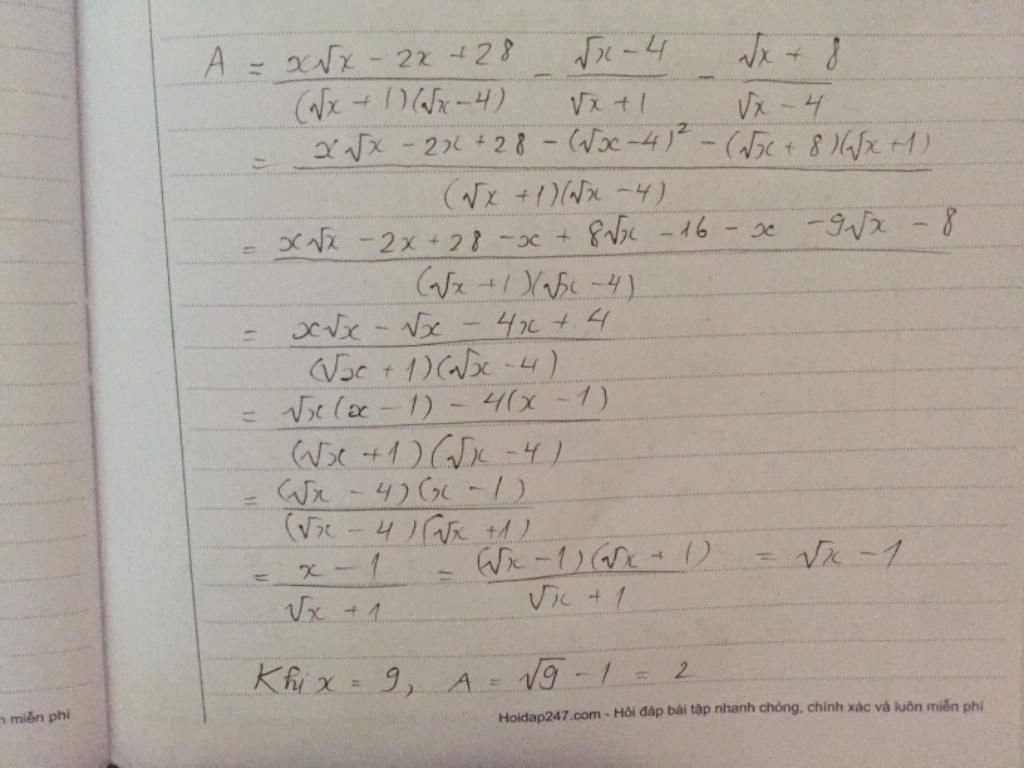 A = (x√x - 2x + 28)/((√x + 1)(√x - 4)) - (√x - 4)/(√x + 1) - (√x + 8)/(√x - 4)
= (x√x - 2x + 28 - (√x - 4)² - (√x + 8)(√x + 1))/((√x + 1)(√x - 4))
= (x√x - 2x + 28 - x + 8√x - 16 - x - 9√x - 8)/((√x + 1)(√x - 4))
= (x√x - √x - 4x + 4)/((√x + 1)(√x - 4))
= (√x(x - 1) - 4(x - 1))/((√x + 1)(√x - 4))
= ((√x - 4)(x - 1))/((√x - 4)(√x + 1))
= (x - 1)/(√x + 1) = ((√x - 1)(√x + 1))/(√x + 1) = √x - 1
Khi x = 9, A = √9 - 1 = 2
miễn phí
Hoidap247.com - Hỏi đáp bài tập nhanh chóng, chính xác và luôn miễn phí